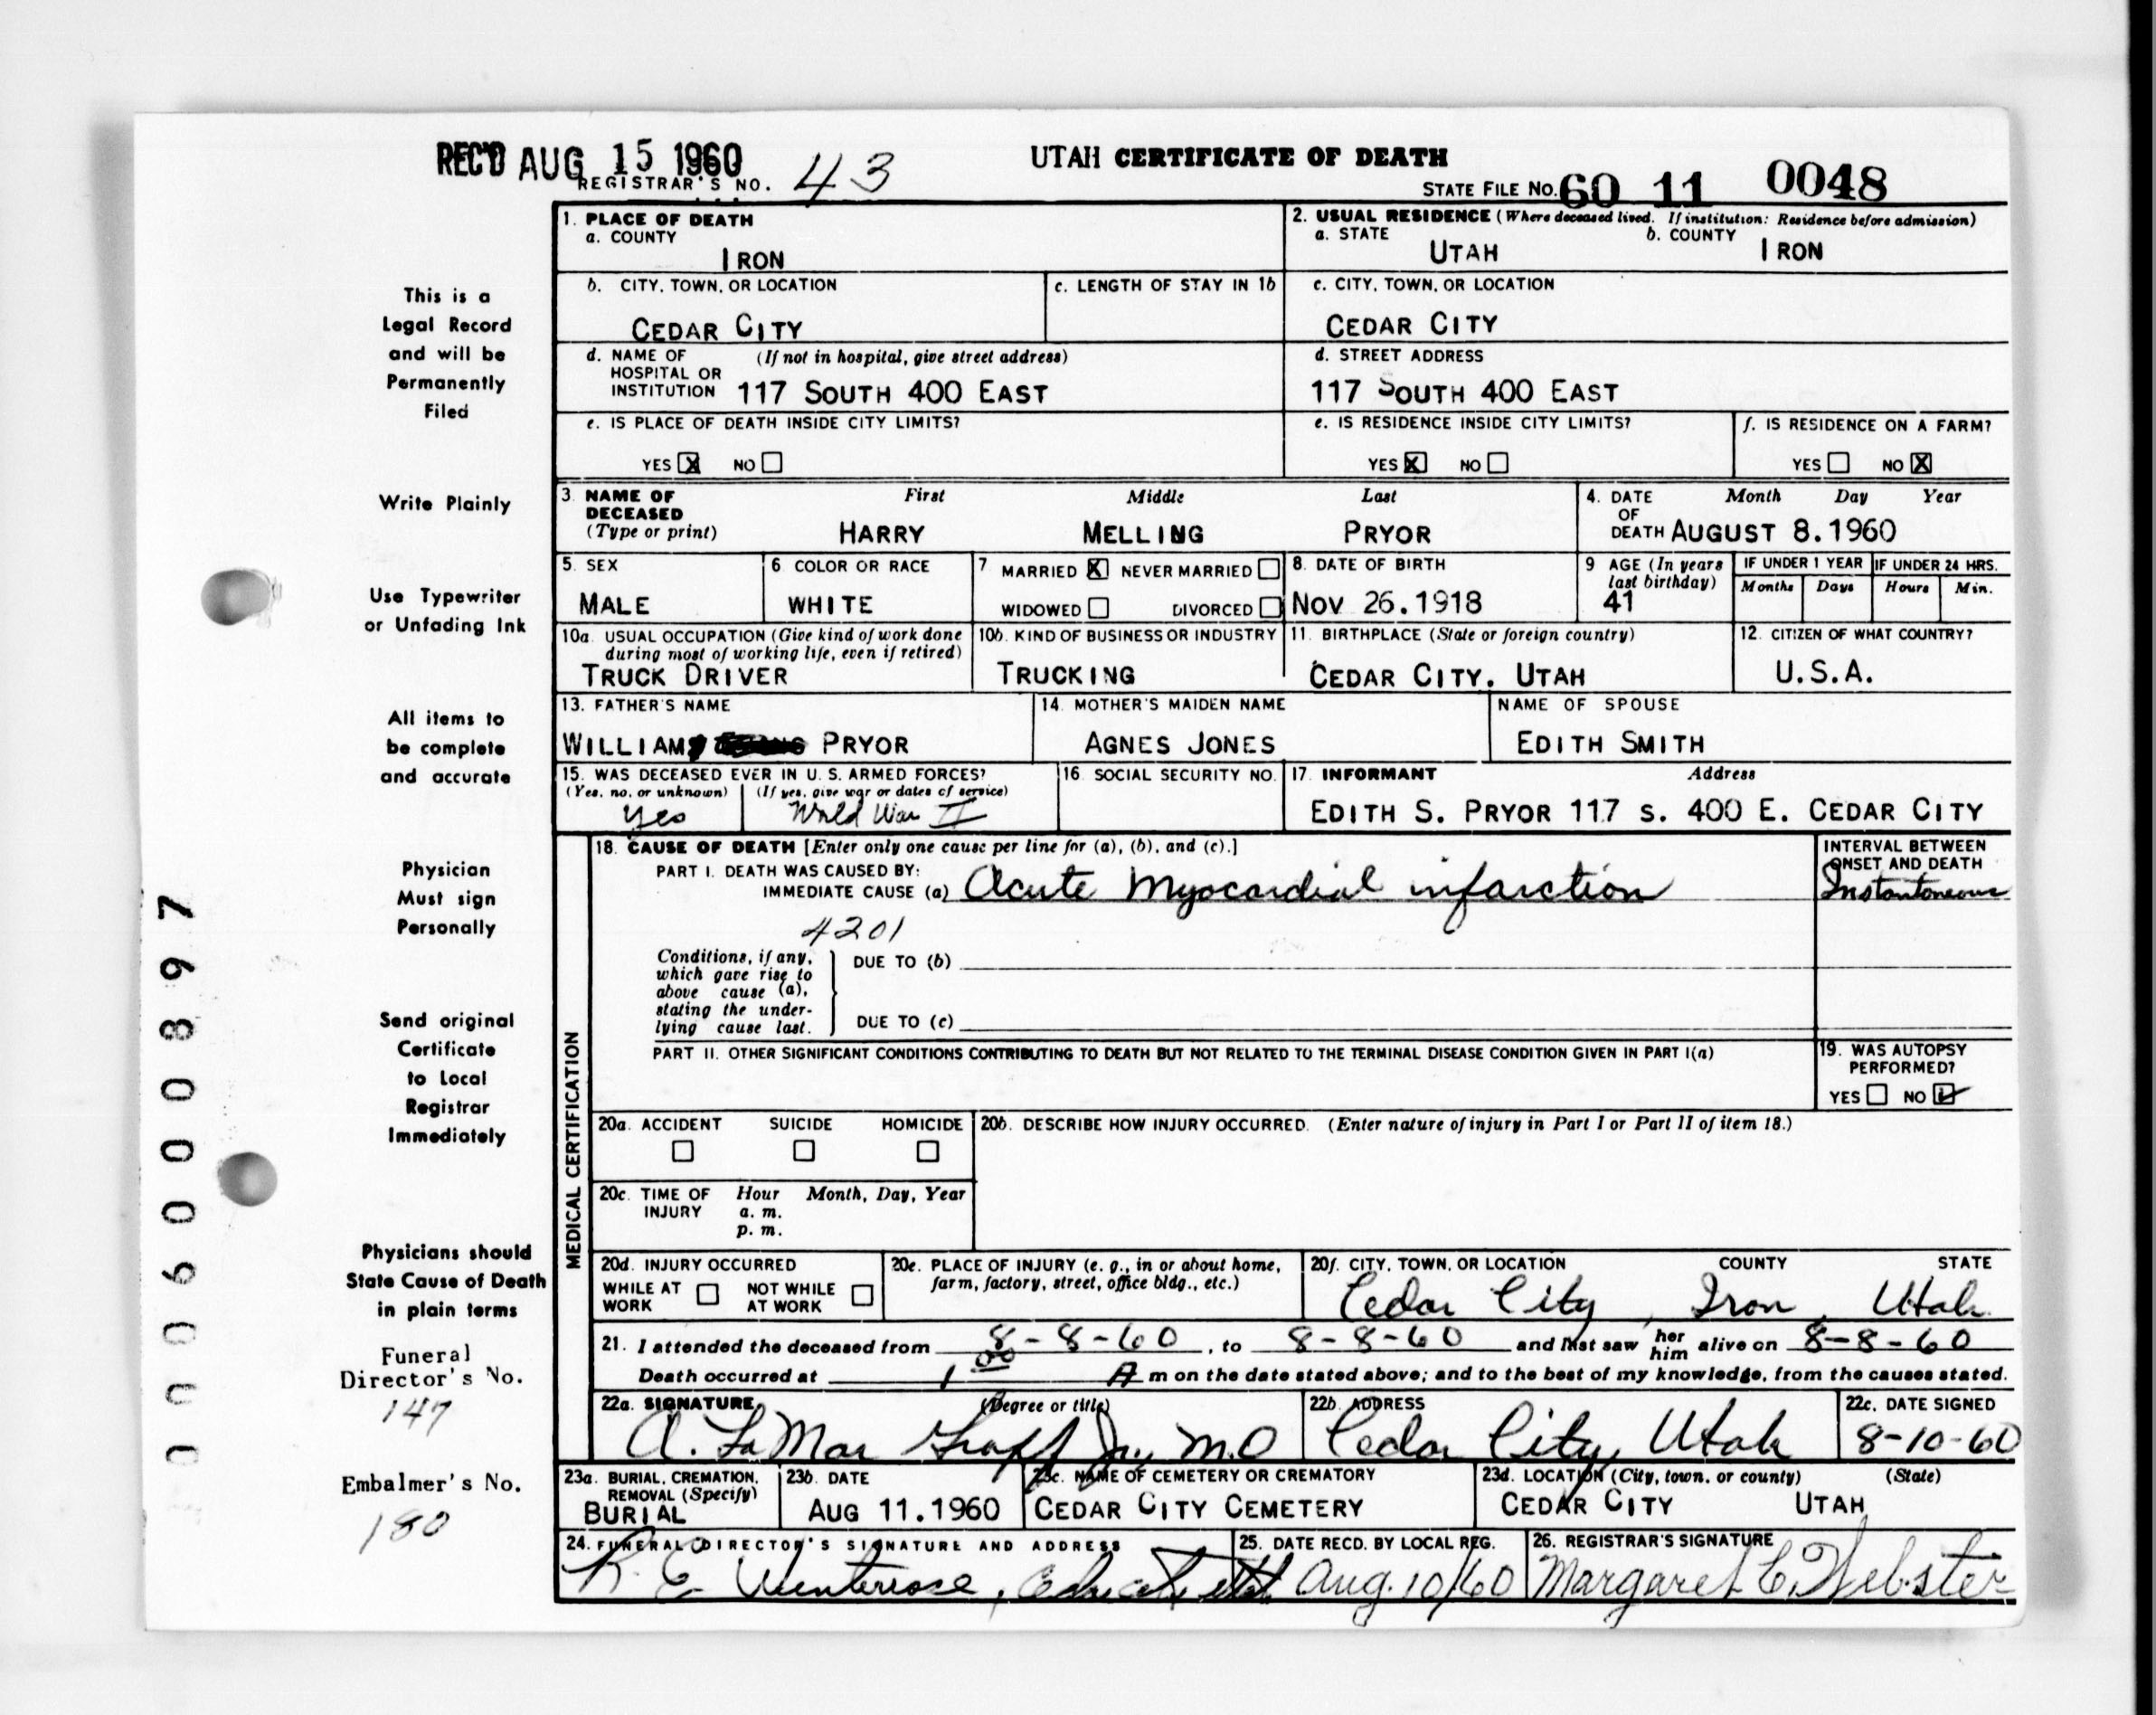 REC'D AUG 15 1960
UTAH CERTIFICATE OF DEATH
REGISTRAR'S NO. 43
STATE FILE NO. 60 11 0048
1. PLACE OF DEATH
a. COUNTY
IRON
2. USUAL RESIDENCE (Where deceased lived. If institution: Residence before admission)
a. STATE b. COUNTY
UTAH IRON
b. CITY, TOWN, OR LOCATION
CEDAR CITY
c. LENGTH OF STAY IN 1b
c. CITY, TOWN, OR LOCATION
CEDAR CITY
d. NAME OF (If not in hospital, give street address)
HOSPITAL OR
INSTITUTION 117 SOUTH 400 EAST
d. STREET ADDRESS
117 SOUTH 400 EAST
e. IS PLACE OF DEATH INSIDE CITY LIMITS?
YES X NO
e. IS RESIDENCE INSIDE CITY LIMITS?
YES X NO
f. IS RESIDENCE ON A FARM?
YES NO X
3. NAME OF DECEASED First Middle Last
(Type or print) HARRY MELLING PRYOR
4. DATE OF DEATH Month Day Year
AUGUST 8.1960
5. SEX
MALE
6 COLOR OR RACE
WHITE
7 MARRIED X NEVER MARRIED
WIDOWED DIVORCED
8. DATE OF BIRTH
NOV 26.1918
9 AGE (In years last birthday)
41
IF UNDER 1 YEAR
Months Days
IF UNDER 24 HRS.
Hours Min.
10a. USUAL OCCUPATION (Give kind of work done
during most of working life, even if retired)
TRUCK DRIVER
10b. KIND OF BUSINESS OR INDUSTRY
TRUCKING
11. BIRTHPLACE (State or foreign country)
CEDAR CITY. UTAH
12. CITIZEN OF WHAT COUNTRY?
U.S.A.
13. FATHER'S NAME
WILLIAM PRYOR
14. MOTHER'S MAIDEN NAME
AGNES JONES
NAME OF SPOUSE
EDITH SMITH
15. WAS DECEASED EVER IN U. S. ARMED FORCES?
(Yes, no, or unknown) (If yes, give war or dates of service)
yes World War II
16. SOCIAL SECURITY NO.
17. INFORMANT Address
EDITH S. PRYOR 117 S. 400 E. CEDAR CITY
MEDICAL CERTIFICATION
18. CAUSE OF DEATH [Enter only one cause per line for (a), (b), and (c).]
PART I. DEATH WAS CAUSED BY:
IMMEDIATE CAUSE (a) Acute Myocardial infarction
INTERVAL BETWEEN
ONSET AND DEATH
Instantoneous
4201
Conditions, if any,
which gave rise to
above cause (a),
stating the under-
lying cause last.
DUE TO (b)
DUE TO (c)
PART II. OTHER SIGNIFICANT CONDITIONS CONTRIBUTING TO DEATH BUT NOT RELATED TO THE TERMINAL DISEASE CONDITION GIVEN IN PART I(a)
19. WAS AUTOPSY
PERFORMED?
YES NO
20a. ACCIDENT SUICIDE HOMICIDE
20b. DESCRIBE HOW INJURY OCCURRED. (Enter nature of injury in Part I or Part II of item 18.)
20c. TIME OF INJURY Hour Month, Day, Year
a. m.
p. m.
20d. INJURY OCCURRED
WHILE AT WORK NOT WHILE AT WORK
20e. PLACE OF INJURY (e. g., in or about home,
farm, factory, street, office bldg., etc.)
20f. CITY, TOWN, OR LOCATION COUNTY STATE
Cedar City, Iron, Utah
21. I attended the deceased from 8-8-60, to 8-8-60 and last saw her him alive on 8-8-60
Death occurred at 1 00 A m on the date stated above; and to the best of my knowledge, from the causes stated.
22a. SIGNATURE (Degree or title)
A. LaMar Graff Jr., M.D
22b. ADDRESS
Cedar City, Utah
22c. DATE SIGNED
8-10-60
23a. BURIAL, CREMATION,
REMOVAL (Specify)
BURIAL
23b. DATE
AUG 11.1960
23c. NAME OF CEMETERY OR CREMATORY
CEDAR CITY CEMETERY
23d. LOCATION (City, town, or county) (State)
CEDAR CITY UTAH
24. FUNERAL DIRECTOR'S SIGNATURE AND ADDRESS
25. DATE RECD. BY LOCAL REG.
Aug. 10/60
26. REGISTRAR'S SIGNATURE
Margaret C. Webster
This is a
Legal Record
and will be
Permanently
Filed
Write Plainly
Use Typewriter
or Unfading Ink
All items to
be complete
and accurate
Physician
Must sign
Personally
Send original
Certificate
to Local
Registrar
Immediately
Physicians should
State Cause of Death
in plain terms
Funeral
Director's No.
147
Embalmer's No.
180
000600897